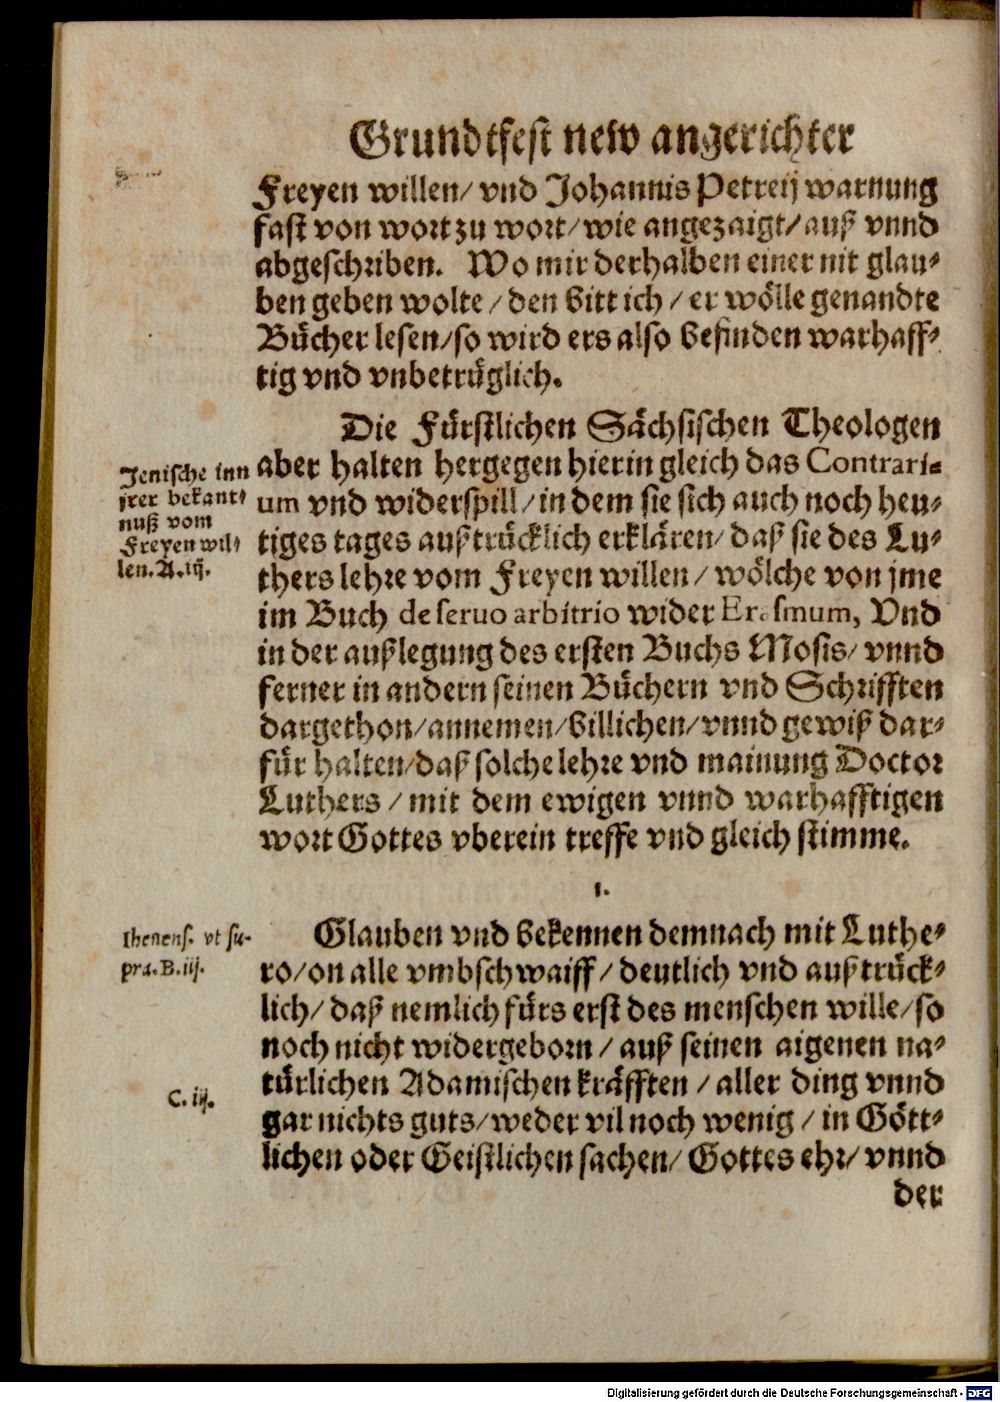 Grundtfest new angerichter
Freyen willen/ vnd Johannis Petreij warnung
fast von wort zu wort/ wie angezaigt/ auß vnnd
abgeschriben. Wo mir derhalben einer nit glau⸗
ben geben wolte/ den bitt ich/ er wölle genandte
Bücher lesen/ so wird ers also befinden warhaff⸗
tig vnd vnbetrüglich.
Die Fürstlichen Sächsischen Theologen
aber halten hergegen hierin gleich das Contrari⸗
um vnd widerspill/ in dem sie sich auch noch heu⸗
tiges tages außtrücklich erklären/ daß sie des Lu⸗
thers lehre vom Freyen willen/ wölche von jme
im Buch de seruo arbitrio wider Erasmum, Vnd
in der außlegung des ersten Buchs Mosis/ vnnd
ferner in andern seinen Büchern vnd Schrifften
dargethon/ annemen/ billichen/ vnnd gewiß dar⸗
für halten/ daß solche lehre vnd mainung Doctor
Luthers/ mit dem ewigen vnnd warhafftigen
wort Gottes vberein treffe vnd gleich stimme.
Jenische inn
jrer bekant⸗
nuß vom
Freyen wil⸗
len. A. iij.
1.
Glauben vnd bekennen demnach mit Luthe⸗
ro/ on alle vmbschwaiff/ deutlich vnd außtrück⸗
lich/ daß nemlich fürs erst des menschen wille/ so
noch nicht widergeborn/ auß seinen aigenen na⸗
türlichen Adamischen kräfften/ aller ding vnnd
gar nichts guts/ weder vil noch wenig/ in Gött⸗
lichen oder Geistlichen sachen/ Gottes ehr/ vnnd
der
Ihenens. vt su⸗
pra. B. iij.
C. iij.
Digitalisierung gefördert durch die Deutsche Forschungsgemeinschaft - DFG